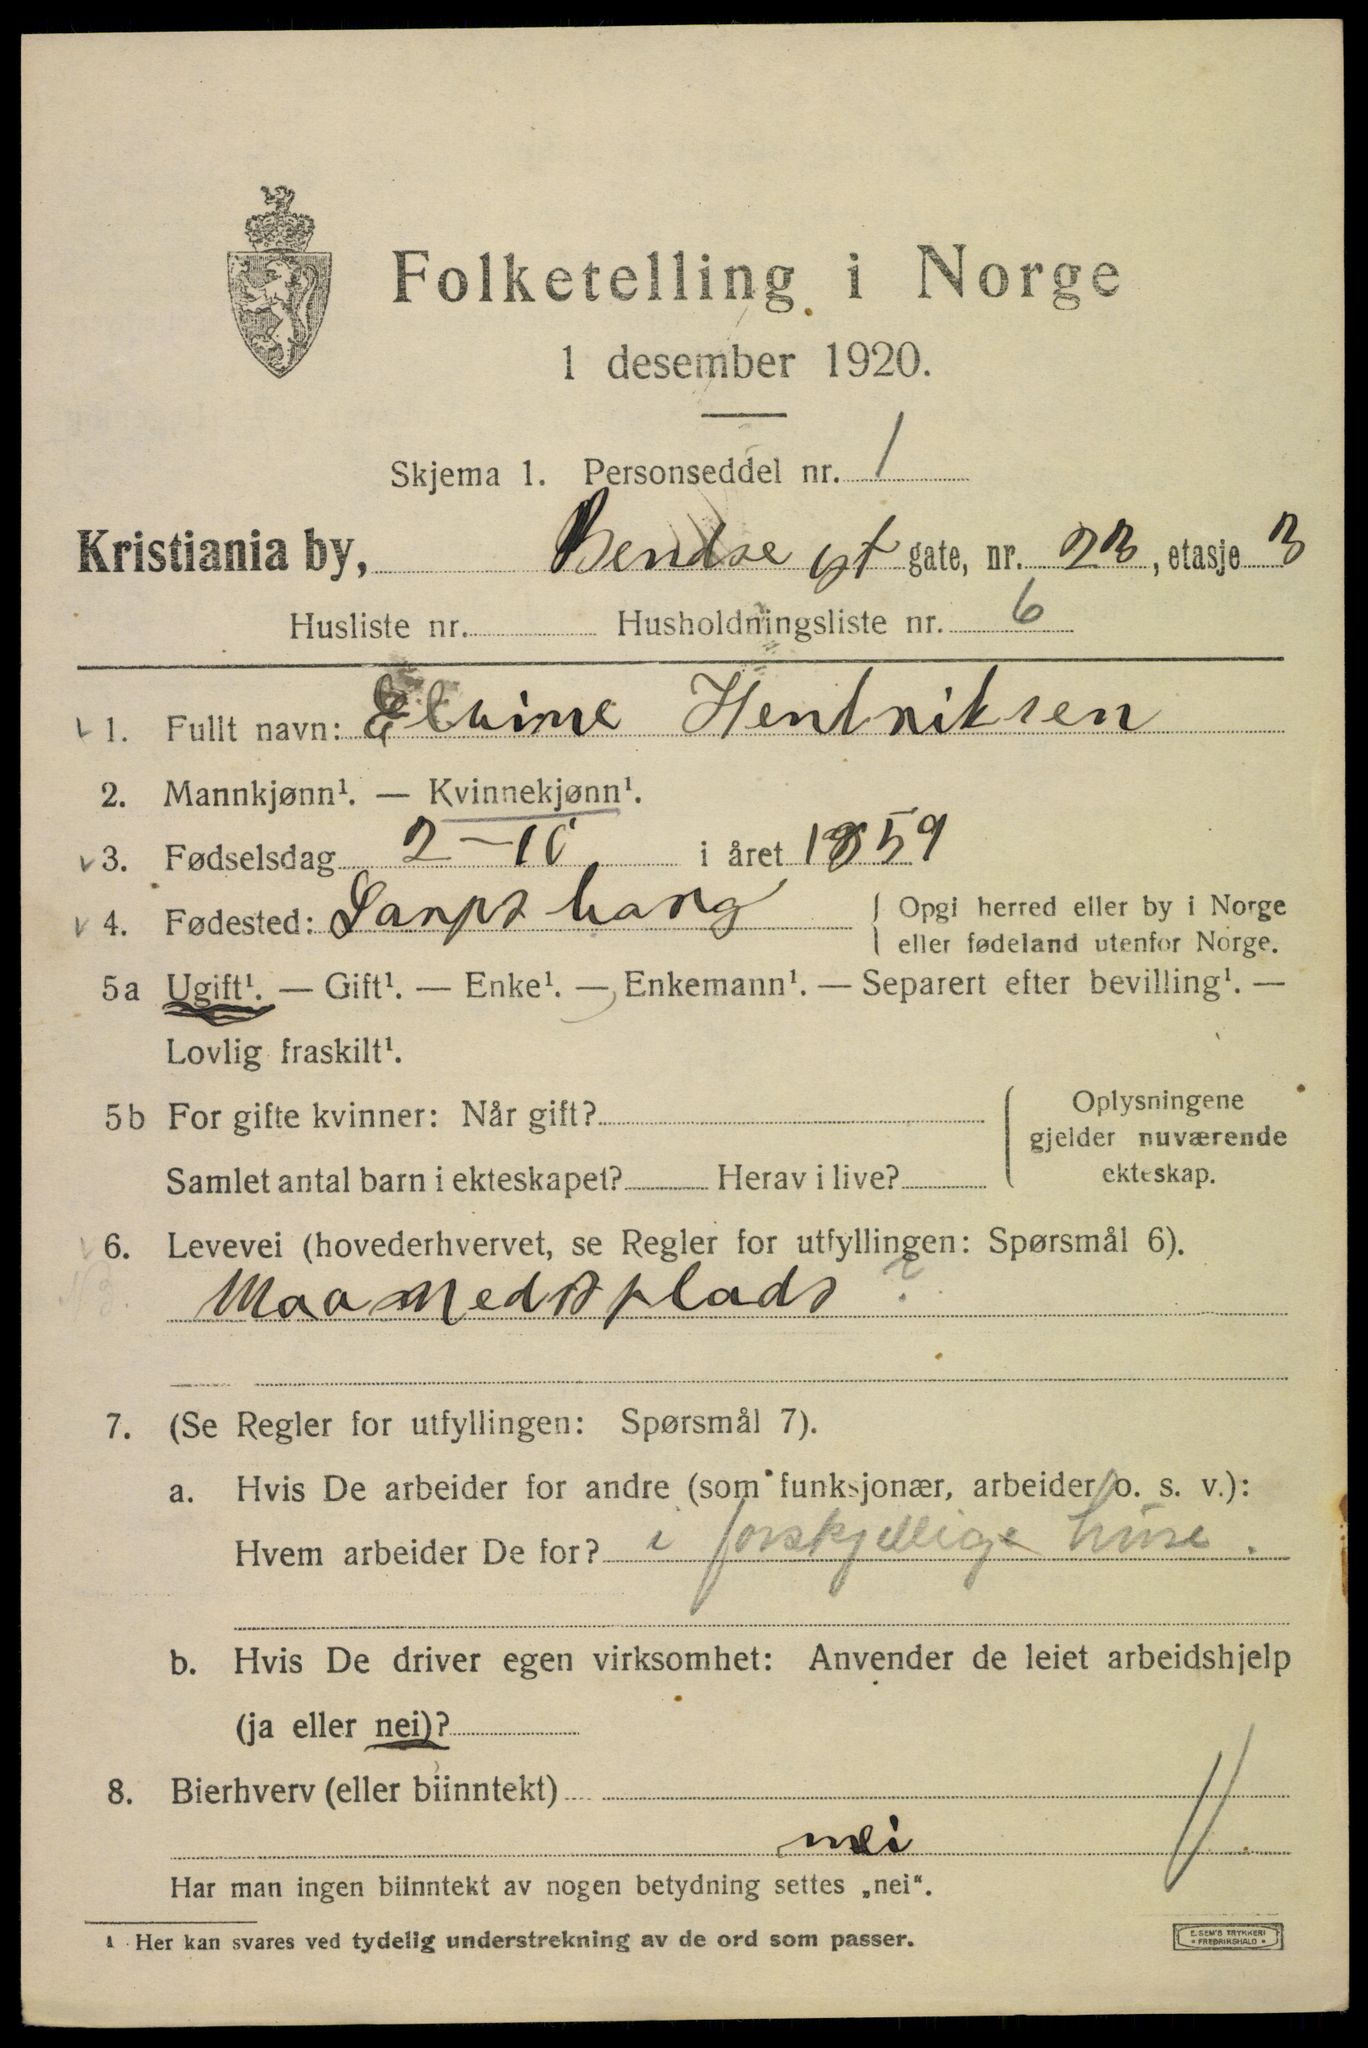 Folketelling i Norge
1 desember 1920.
Skjema 1. Personseddel nr. 1
Kristiania by, Bendse gt gate, nr. 23, etasje 3
Husliste nr. Husholdningsliste nr. 6
1. Fullt navn: Elvine Hendriksen
2. Mannkjønn¹. — Kvinnekjønn¹.
3. Fødselsdag 2-10 i året 1859
4. Fødested: Sarpsbarg { Opgi herred eller by i Norge
eller fødeland utenfor Norge.
5a Ugift¹. — Gift¹. — Enke¹. — Enkemann¹. — Separert efter bevilling¹. —
Lovlig fraskilt¹.
5b For gifte kvinner: Når gift?
Samlet antal barn i ekteskapet? Herav i live?
{ Oplysningene
gjelder nuværende
ekteskap.
6. Levevei (hovederhvervet, se Regler for utfyllingen: Spørsmål 6).
Maanedsplads ?
7. (Se Regler for utfyllingen: Spørsmål 7).
a. Hvis De arbeider for andre (som funksjonær, arbeider o. s. v.):
Hvem arbeider De for? i forskjellige huse.
b. Hvis De driver egen virksomhet: Anvender de leiet arbeidshjelp
(ja eller nei)?
8. Bierhverv (eller biinntekt)
nei
Har man ingen biinntekt av nogen betydning settes „nei“.
¹ Her kan svares ved tydelig understrekning av de ord som passer.
E. SEM'S TRYKKERI
• FREDRIKSHALD •